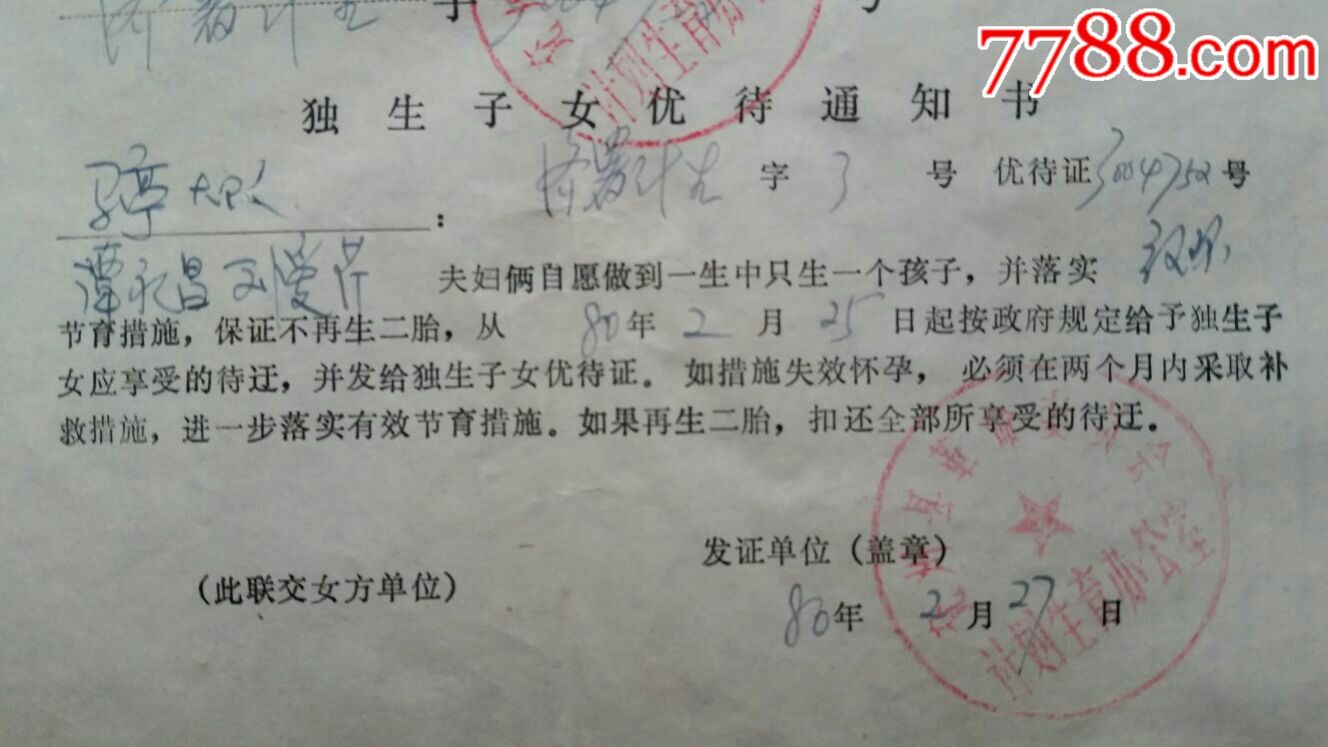 7788.com
独生子女优待通知书
字 3 号 优待证3004752号
：
谭礼昌 夫妇俩自愿做到一生中只生一个孩子，并落实
节育措施，保证不再生二胎，从 80年 2 月 25 日起按政府规定给予独生子
女应享受的待迂，并发给独生子女优待证。如措施失效怀孕，必须在两个月内采取补
救措施，进一步落实有效节育措施。如果再生二胎，扣还全部所享受的待迂。
发证单位（盖章）
（此联交女方单位）
80年 2 月 27 日
计划生育办公室